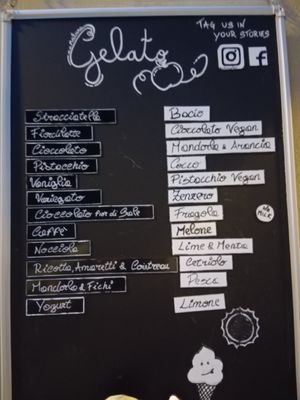 Gelato
TAG US IN
YOUR STORIES
Stracciatella
Fiordilatte
Cioccolato
Pistacchio
Vaniglia
Variegato
Cioccolato Fior di Sale
Caffè
Nocciola
Ricotta, Amaretti &
Mandorle & Fichi
Yogurt
Bacio
Cioccolato Vegan
Mandorle & Arancia
Cocco
Pistacchio Vegan
Zenzero
Fragola
Melone
Lime & Menta
Cetriolo
Pesca
Limone
NO
MILK